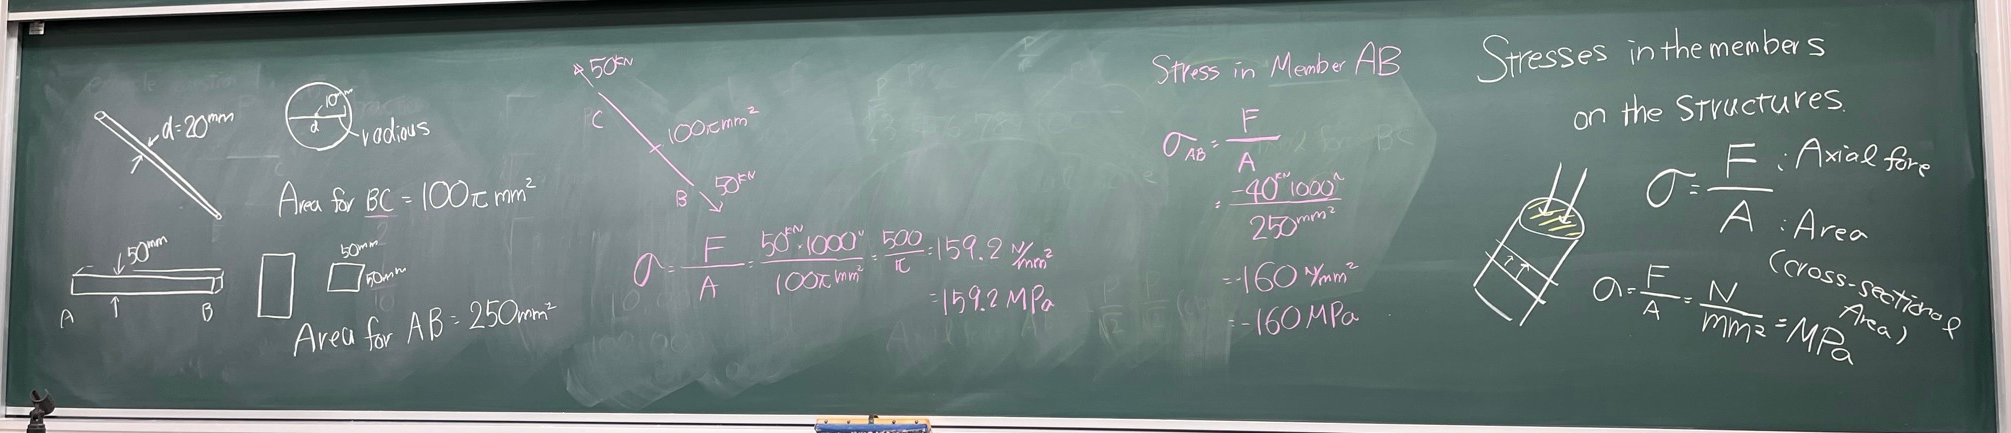 d=20mm
10mm
d
radious
Area for BC = 100π mm²
50mm
A
B
50mm
50mm
Area for AB = 250mm²
50kN
C
100πmm²
B
50kN
σ = F/A = 50kN·1000N/100πmm² = 500/π = 159.2 N/mm²
= 159.2 MPa
Stress in Member AB
σAB = F/A
= -40kN 1000N/250mm²
= -160 N/mm²
= -160 MPa
Stresses in the members
on the Structures.
σ = F/A
: Axial fore
: Area
(cross-sectional
Area)
σ = F/A = N/mm² = MPa